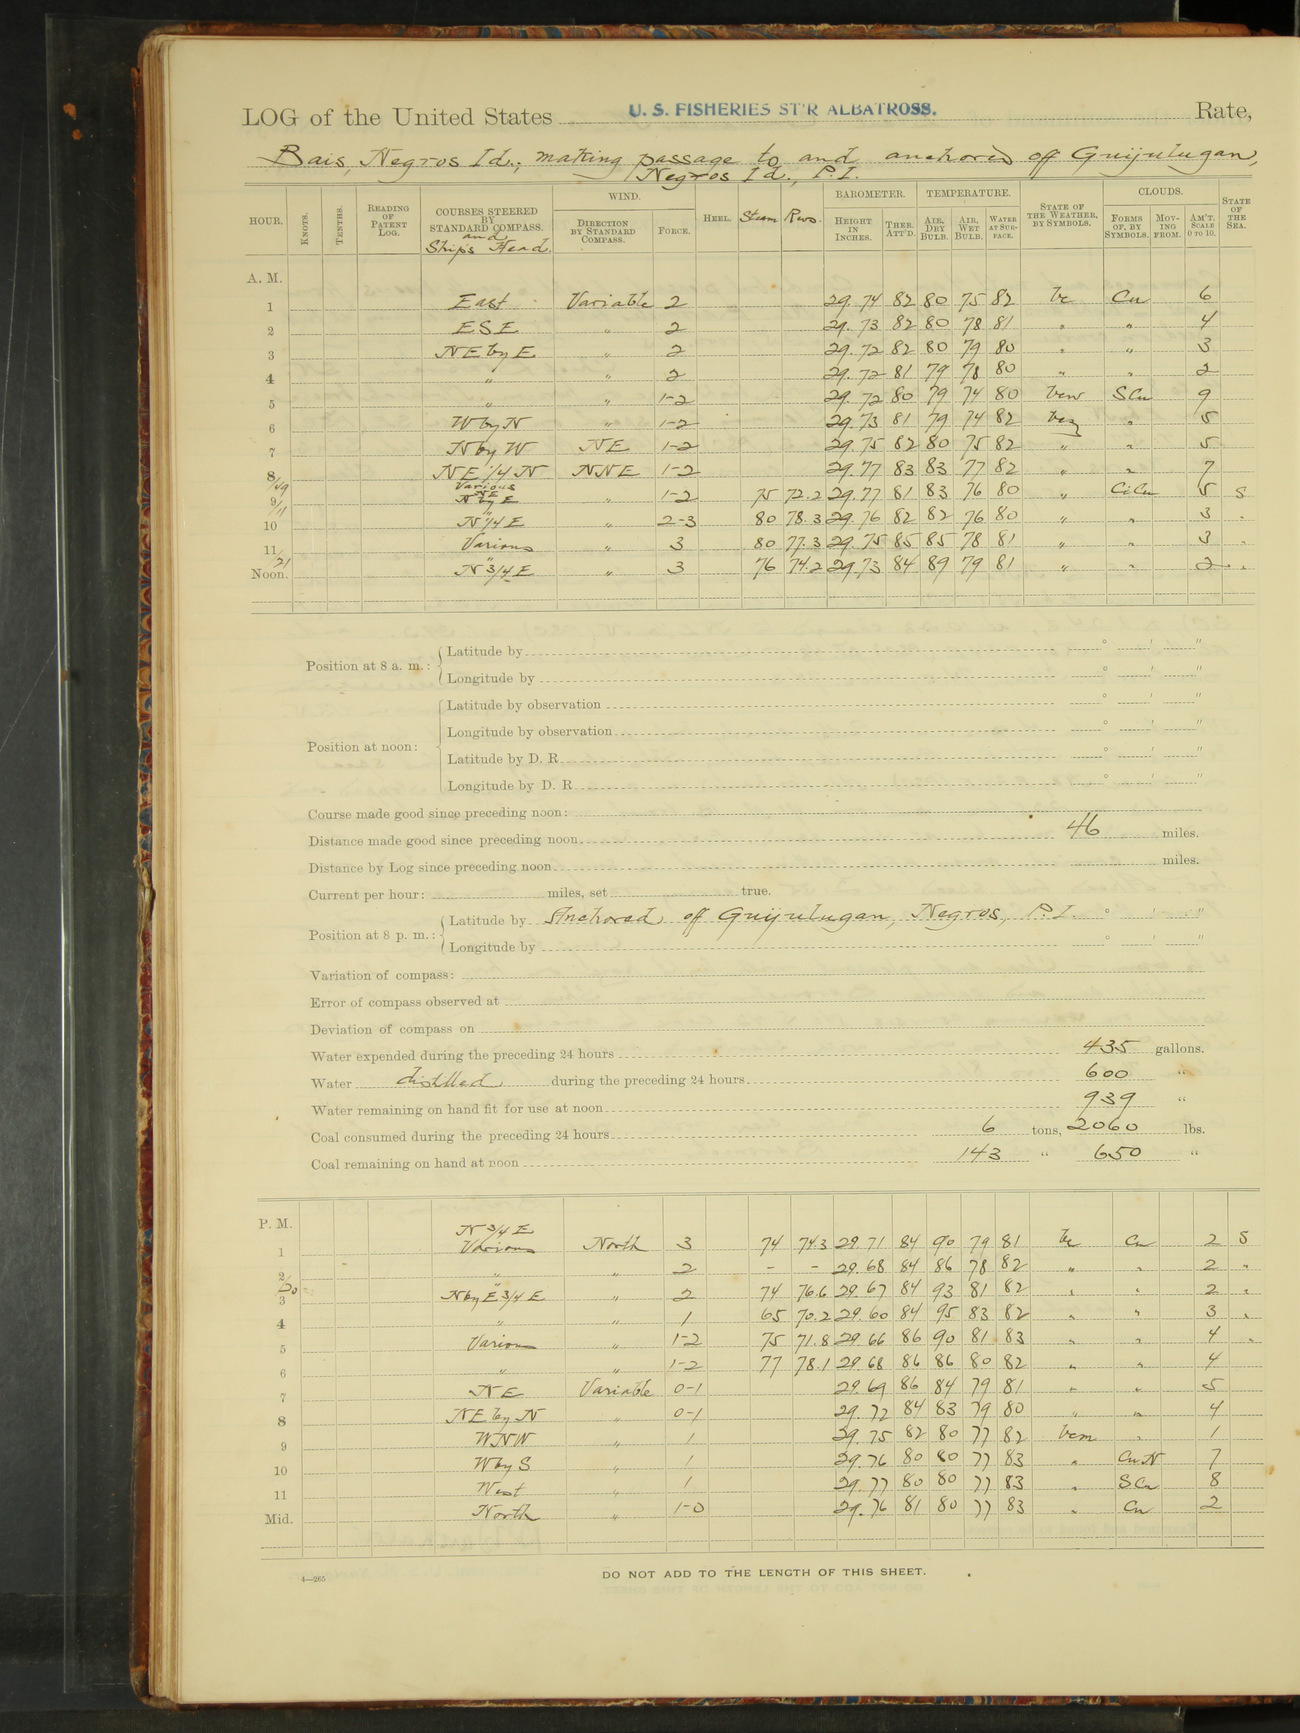 LOG of the United States U. S. FISHERIES ST'R ALBATROSS. Rate,
Bais, Negros Id., making passage to and anchored off Guijulugan,
Negros Id., P.I.
HOUR. KNOTS. TENTHS. READING OF PATENT LOG. COURSES STEERED BY STANDARD COMPASS. and Ships Head. WIND. DIRECTION BY STANDARD COMPASS. FORCE. HEEL. Steam Revs. BAROMETER. HEIGHT IN INCHES. THER. ATT'D. TEMPERATURE. AIR, DRY BULB. AIR, WET BULB. WATER AT SURFACE. STATE OF THE WEATHER, BY SYMBOLS. CLOUDS. FORMS OF, BY SYMBOLS. MOVING FROM. AM'T. SCALE 0 TO 10. STATE OF THE SEA.
A. M.
1 East Variable 2 29.74 82 80 75 82 bc Cu 6
2 ESE " 2 29.73 82 80 78 81 " " 4
3 NE by E " 2 29.72 82 80 79 80 " " 3
4 " " 2 29.72 81 79 78 80 " " 2
5 " " 1-2 29.72 80 79 74 80 SCu 9
6 W by N " 1-2 29.73 81 79 74 82 " 5
7 N by W NE 1-2 29.75 82 80 75 82 " " 5
8 NE 1/4 N NNE 1-2 29.77 83 83 77 82 " " 7
9 Various " 1-2 75 72.2 29.77 81 83 76 80 " CiCu 5 S
10 N 1/4 E " 2-3 80 78.3 29.76 82 82 76 80 " " 3 "
11 Various " 3 80 77.3 29.75 85 85 78 81 " " 3 "
Noon. N 3/4 E " 3 76 74.2 29.73 84 89 79 81 " " 2 "
Position at 8 a. m.: Latitude by ° ' "
Longitude by ° ' "
Position at noon: Latitude by observation ° ' "
Longitude by observation ° ' "
Latitude by D. R. ° ' "
Longitude by D. R. ° ' "
Course made good since preceding noon:
Distance made good since preceding noon 46 miles.
Distance by Log since preceding noon miles.
Current per hour: miles, set true.
Position at 8 p. m.: Latitude by Anchored off Guijulugan, Negros, P.I. ° ' "
Longitude by ° ' "
Variation of compass:
Error of compass observed at
Deviation of compass on
Water expended during the preceding 24 hours 435 gallons.
Water distilled during the preceding 24 hours 600 "
Water remaining on hand fit for use at noon 939 "
Coal consumed during the preceding 24 hours 6 tons, 2060 lbs.
Coal remaining on hand at noon 143 " 650 "
P. M.
N 3/4 E
1 Various North 3 74 74.3 29.71 84 90 79 81 bc Cu 2 S
2 " " 2 - - 29.68 84 86 78 82 " " 2 "
3 N by E 3/4 E " 2 74 76.6 29.67 84 93 81 82 " " 2 "
4 " " 1 65 70.2 29.60 84 95 83 82 " " 3 "
5 Various " 1-2 75 71.8 29.66 86 90 81 83 " " 4 "
6 " " 1-2 77 78.1 29.68 86 86 80 82 " " 4
7 NE Variable 0-1 29.69 86 84 79 81 " " 5
8 NE by N " 0-1 29.72 84 83 79 80 " " 4
9 WNW " 1 29.75 82 80 77 82 bcm " 1
10 W by S " 1 29.76 80 80 77 83 " CuN 7
11 West " 1 29.77 80 80 77 83 " SCu 8
Mid. North " 1-0 29.76 81 80 77 83 " Cu 2
4—265
DO NOT ADD TO THE LENGTH OF THIS SHEET.